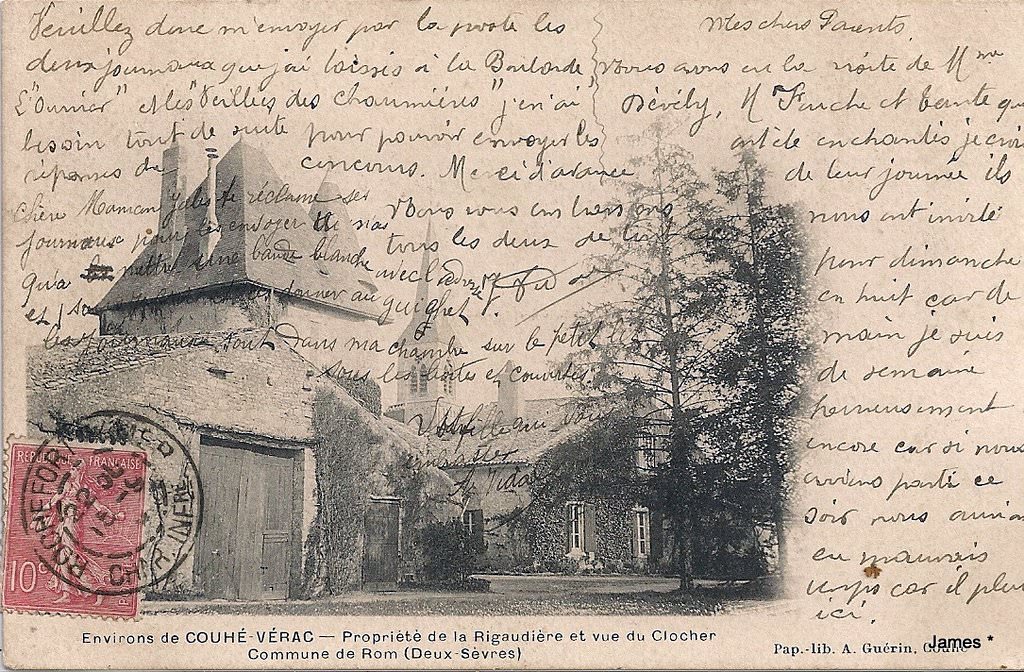 Mes chers Parents,
Nous avons eu la visite de Mme
Dévély, M Fouche et tante qui
ont été enchantés je crois
de leur journée ils
nous ont invité
pour dimanche
en huit car de
main je suis
de semaine
heureusement
encore car si nous
avions parti ce
soir nous aurions
eu mauvais
temps car il pleut
ici.
Veuillez donc m'envoyer par la poste les
deux journaux que j'ai laissés à la
L'"Ouvrier" et les "Veillées des chaumières" j'en ai
besoin tout de suite pour pouvoir envoyer les
réponses du concours. Merci d'avance
Nous vous embrassons
tous les deux de
Chère Maman je te réclame ses
journaux pour les envoyer
Qu'a mettre une bande blanche avec l'adresse
et donner au guichet.
les journaux sont dans ma chambre sur le petit lit
sous les boites et couvertes
REPUBLIQUE FRANÇAISE
10c
ROCHEFORT-S-MER
CHAR. INFRE
Environs de COUHÉ-VÉRAC — Propriété de la Rigaudière et vue du Clocher
Commune de Rom (Deux-Sèvres)
Pap.-lib. A. Guérin, Couhé
James *